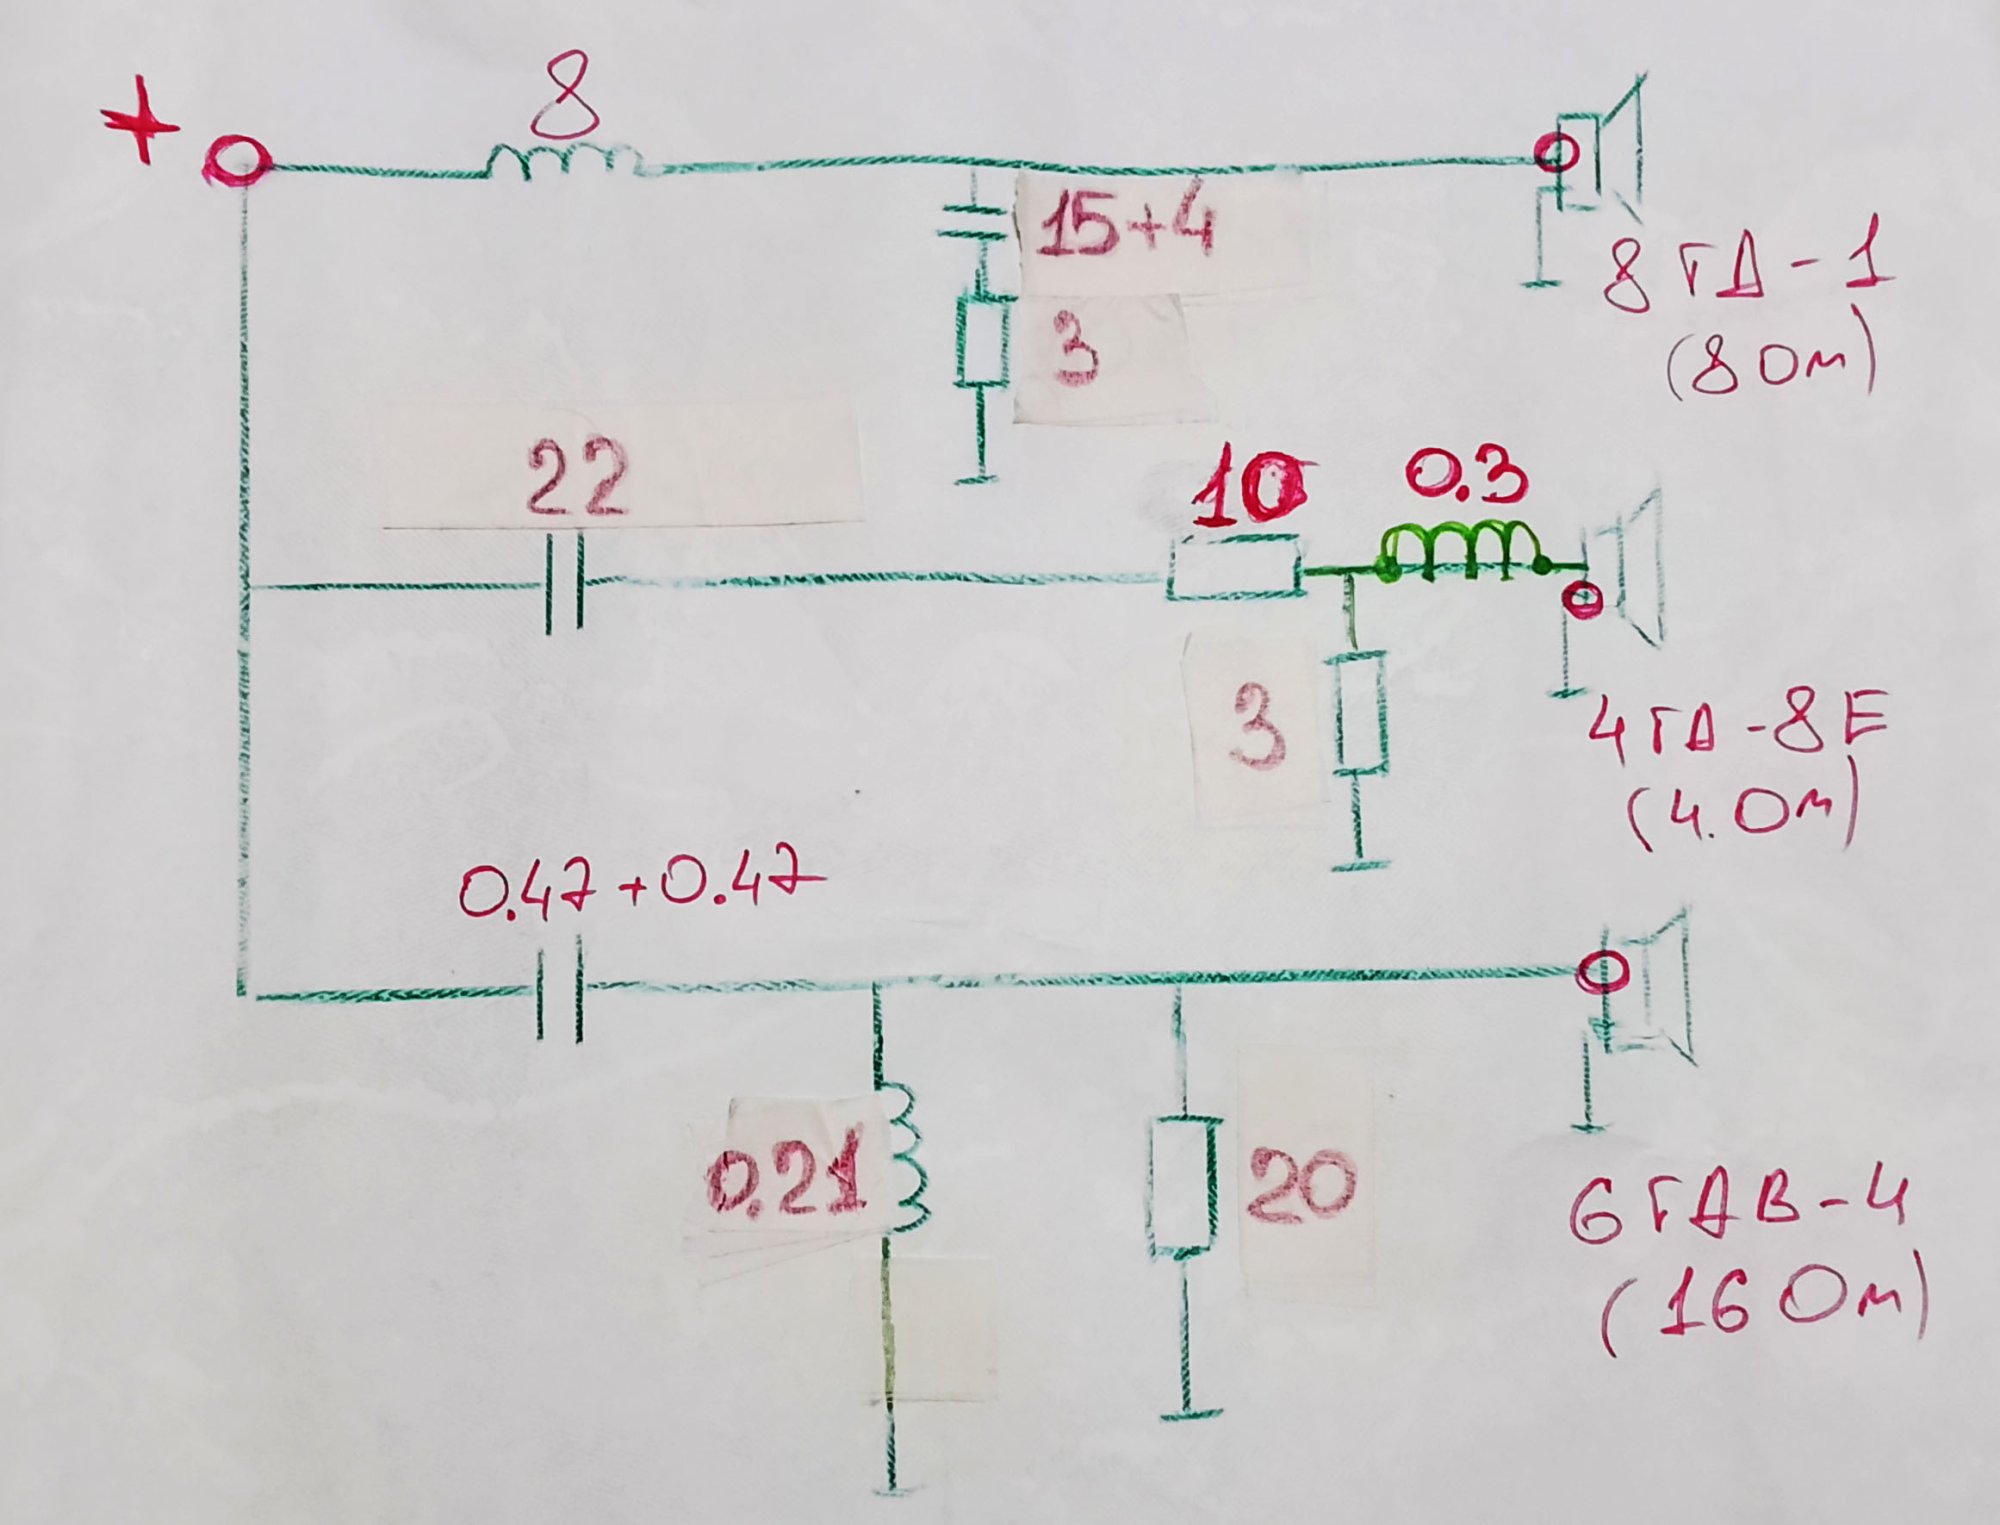 +
8
15+4
8 ГД-1
(8 Ом)
3
22
10
0.3
3
4 ГД-8Е
(4.Ом)
0.47+0.47
0.21
20
6 ГДВ-4
(16 Ом)